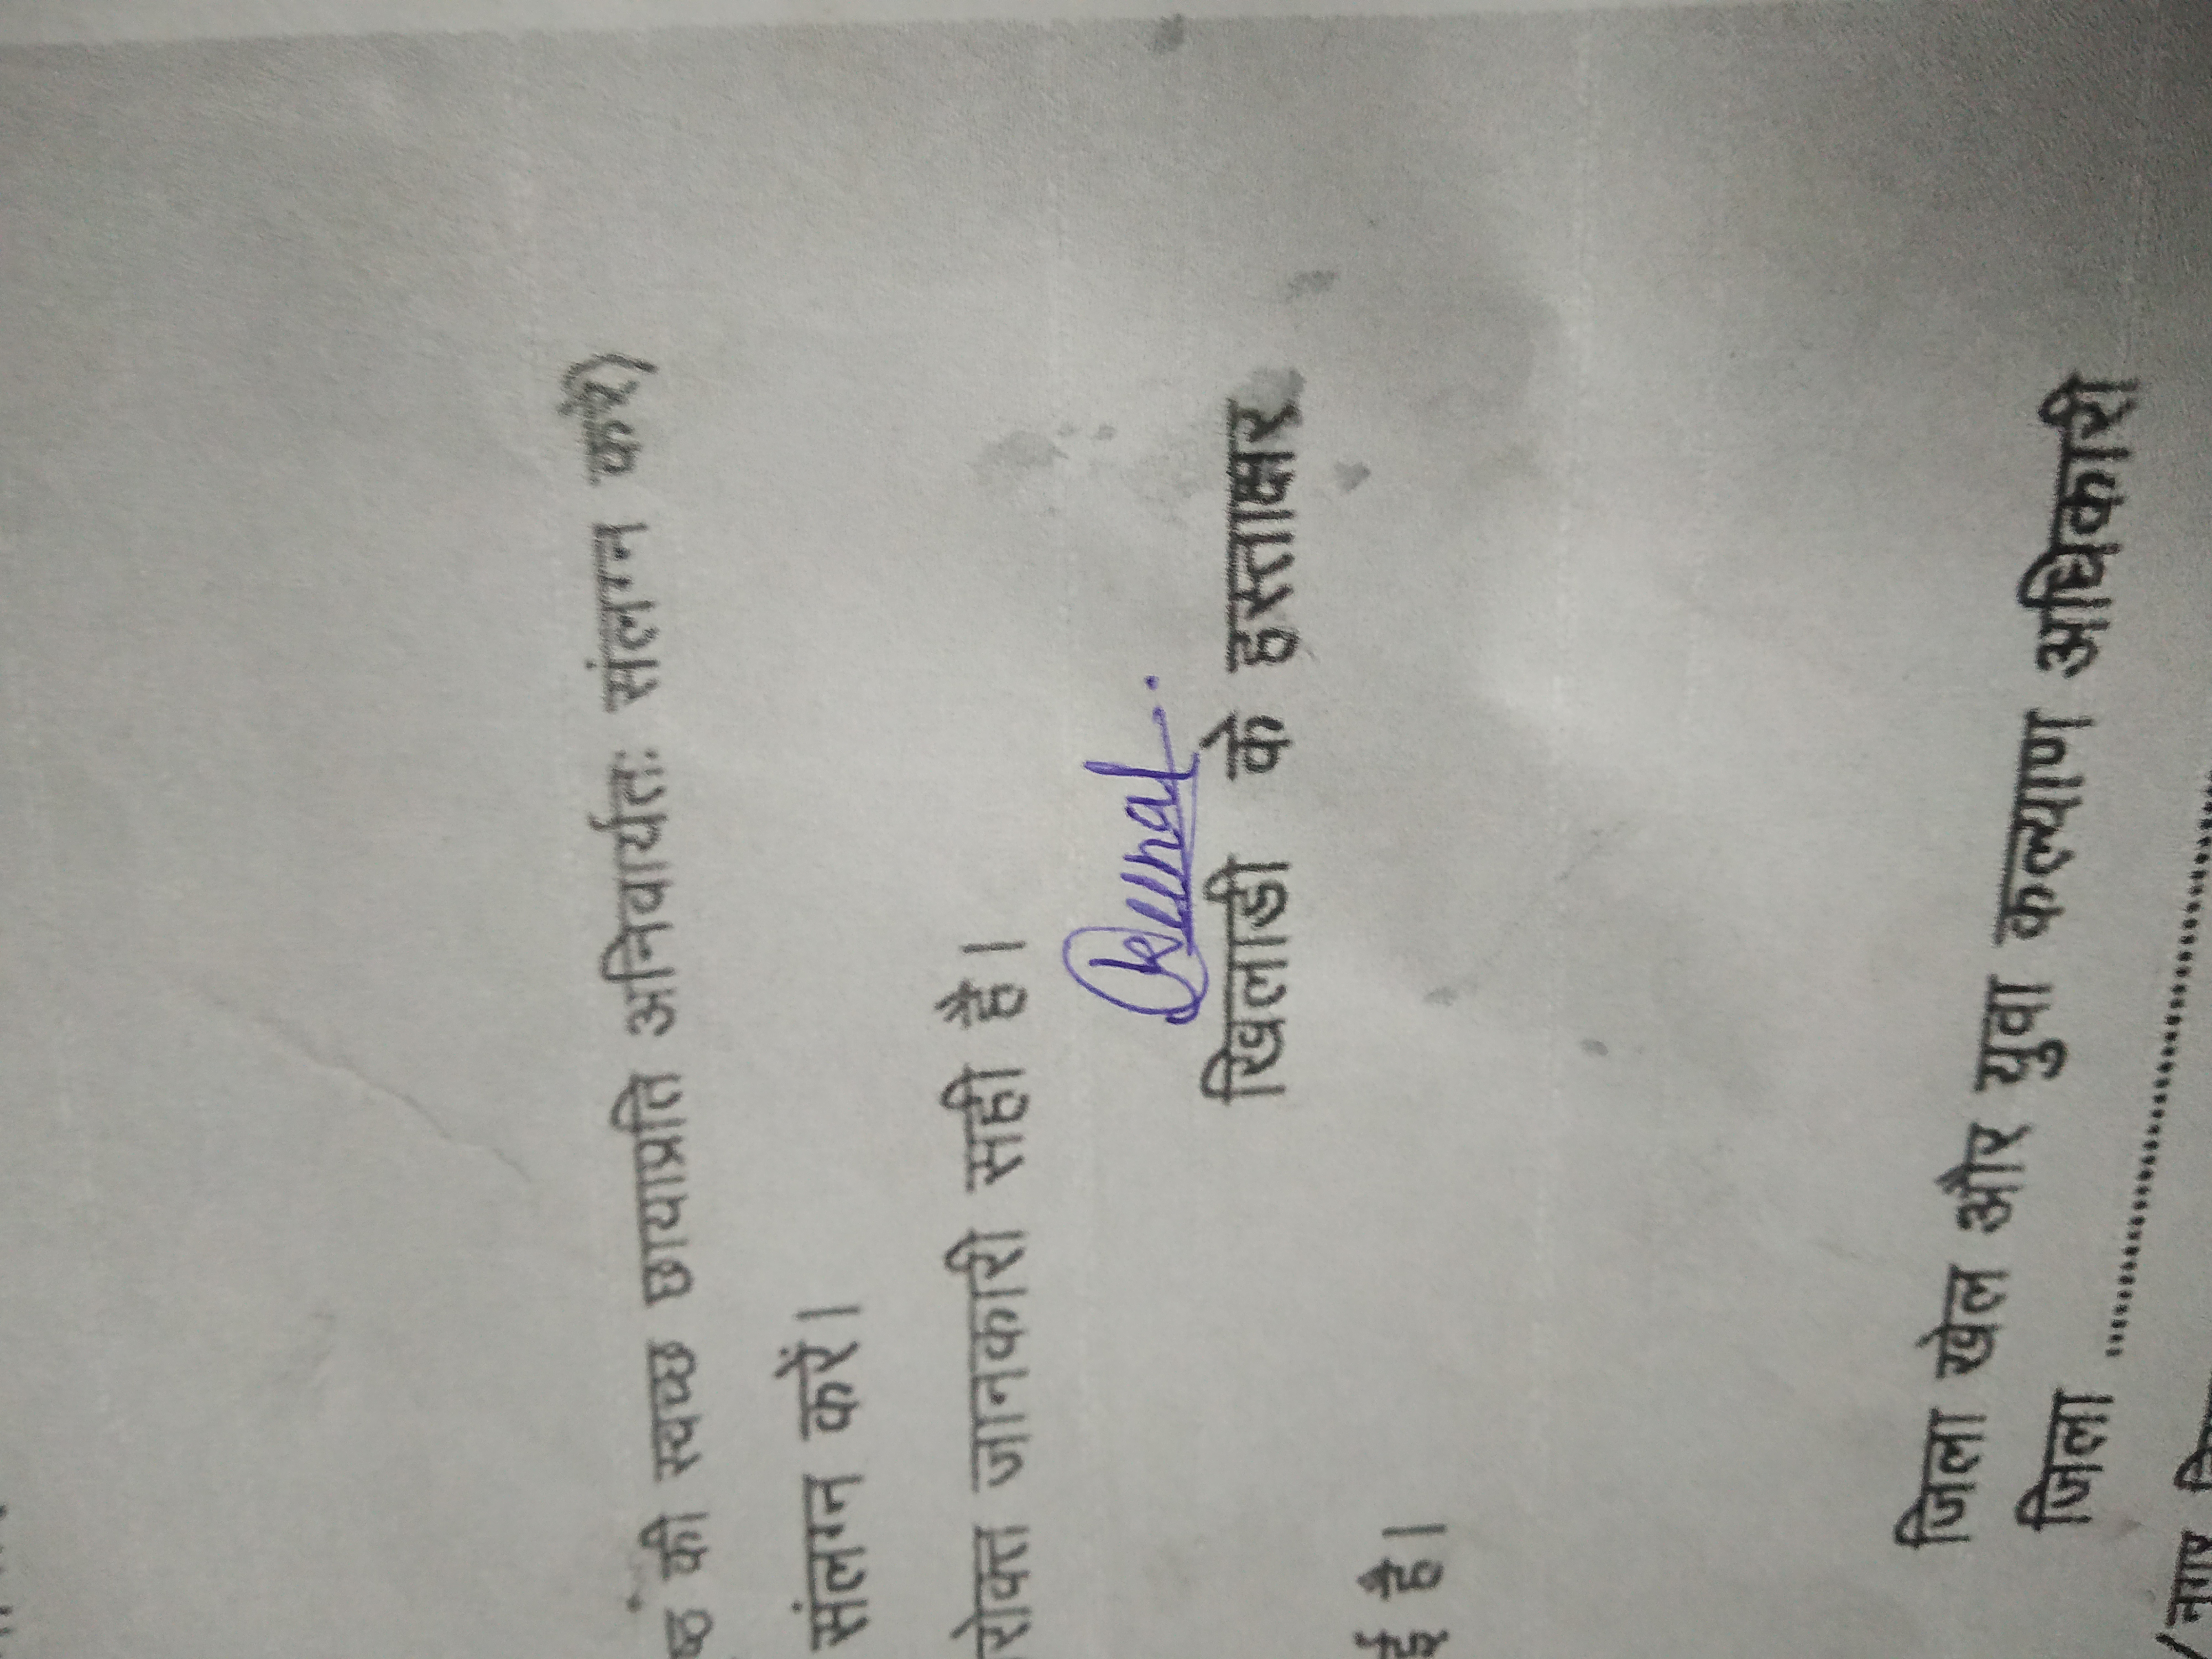 की स्वच्छ छायाप्रति अनिवार्यतः संलग्न करे)
संलग्न करें।
रोक्त जानकारी सही है।
Kunal.
खिलाडी के हस्ताक्षर
ई है।
जिला खेल और युवा कल्याण अधिकारी
जिला ..........................